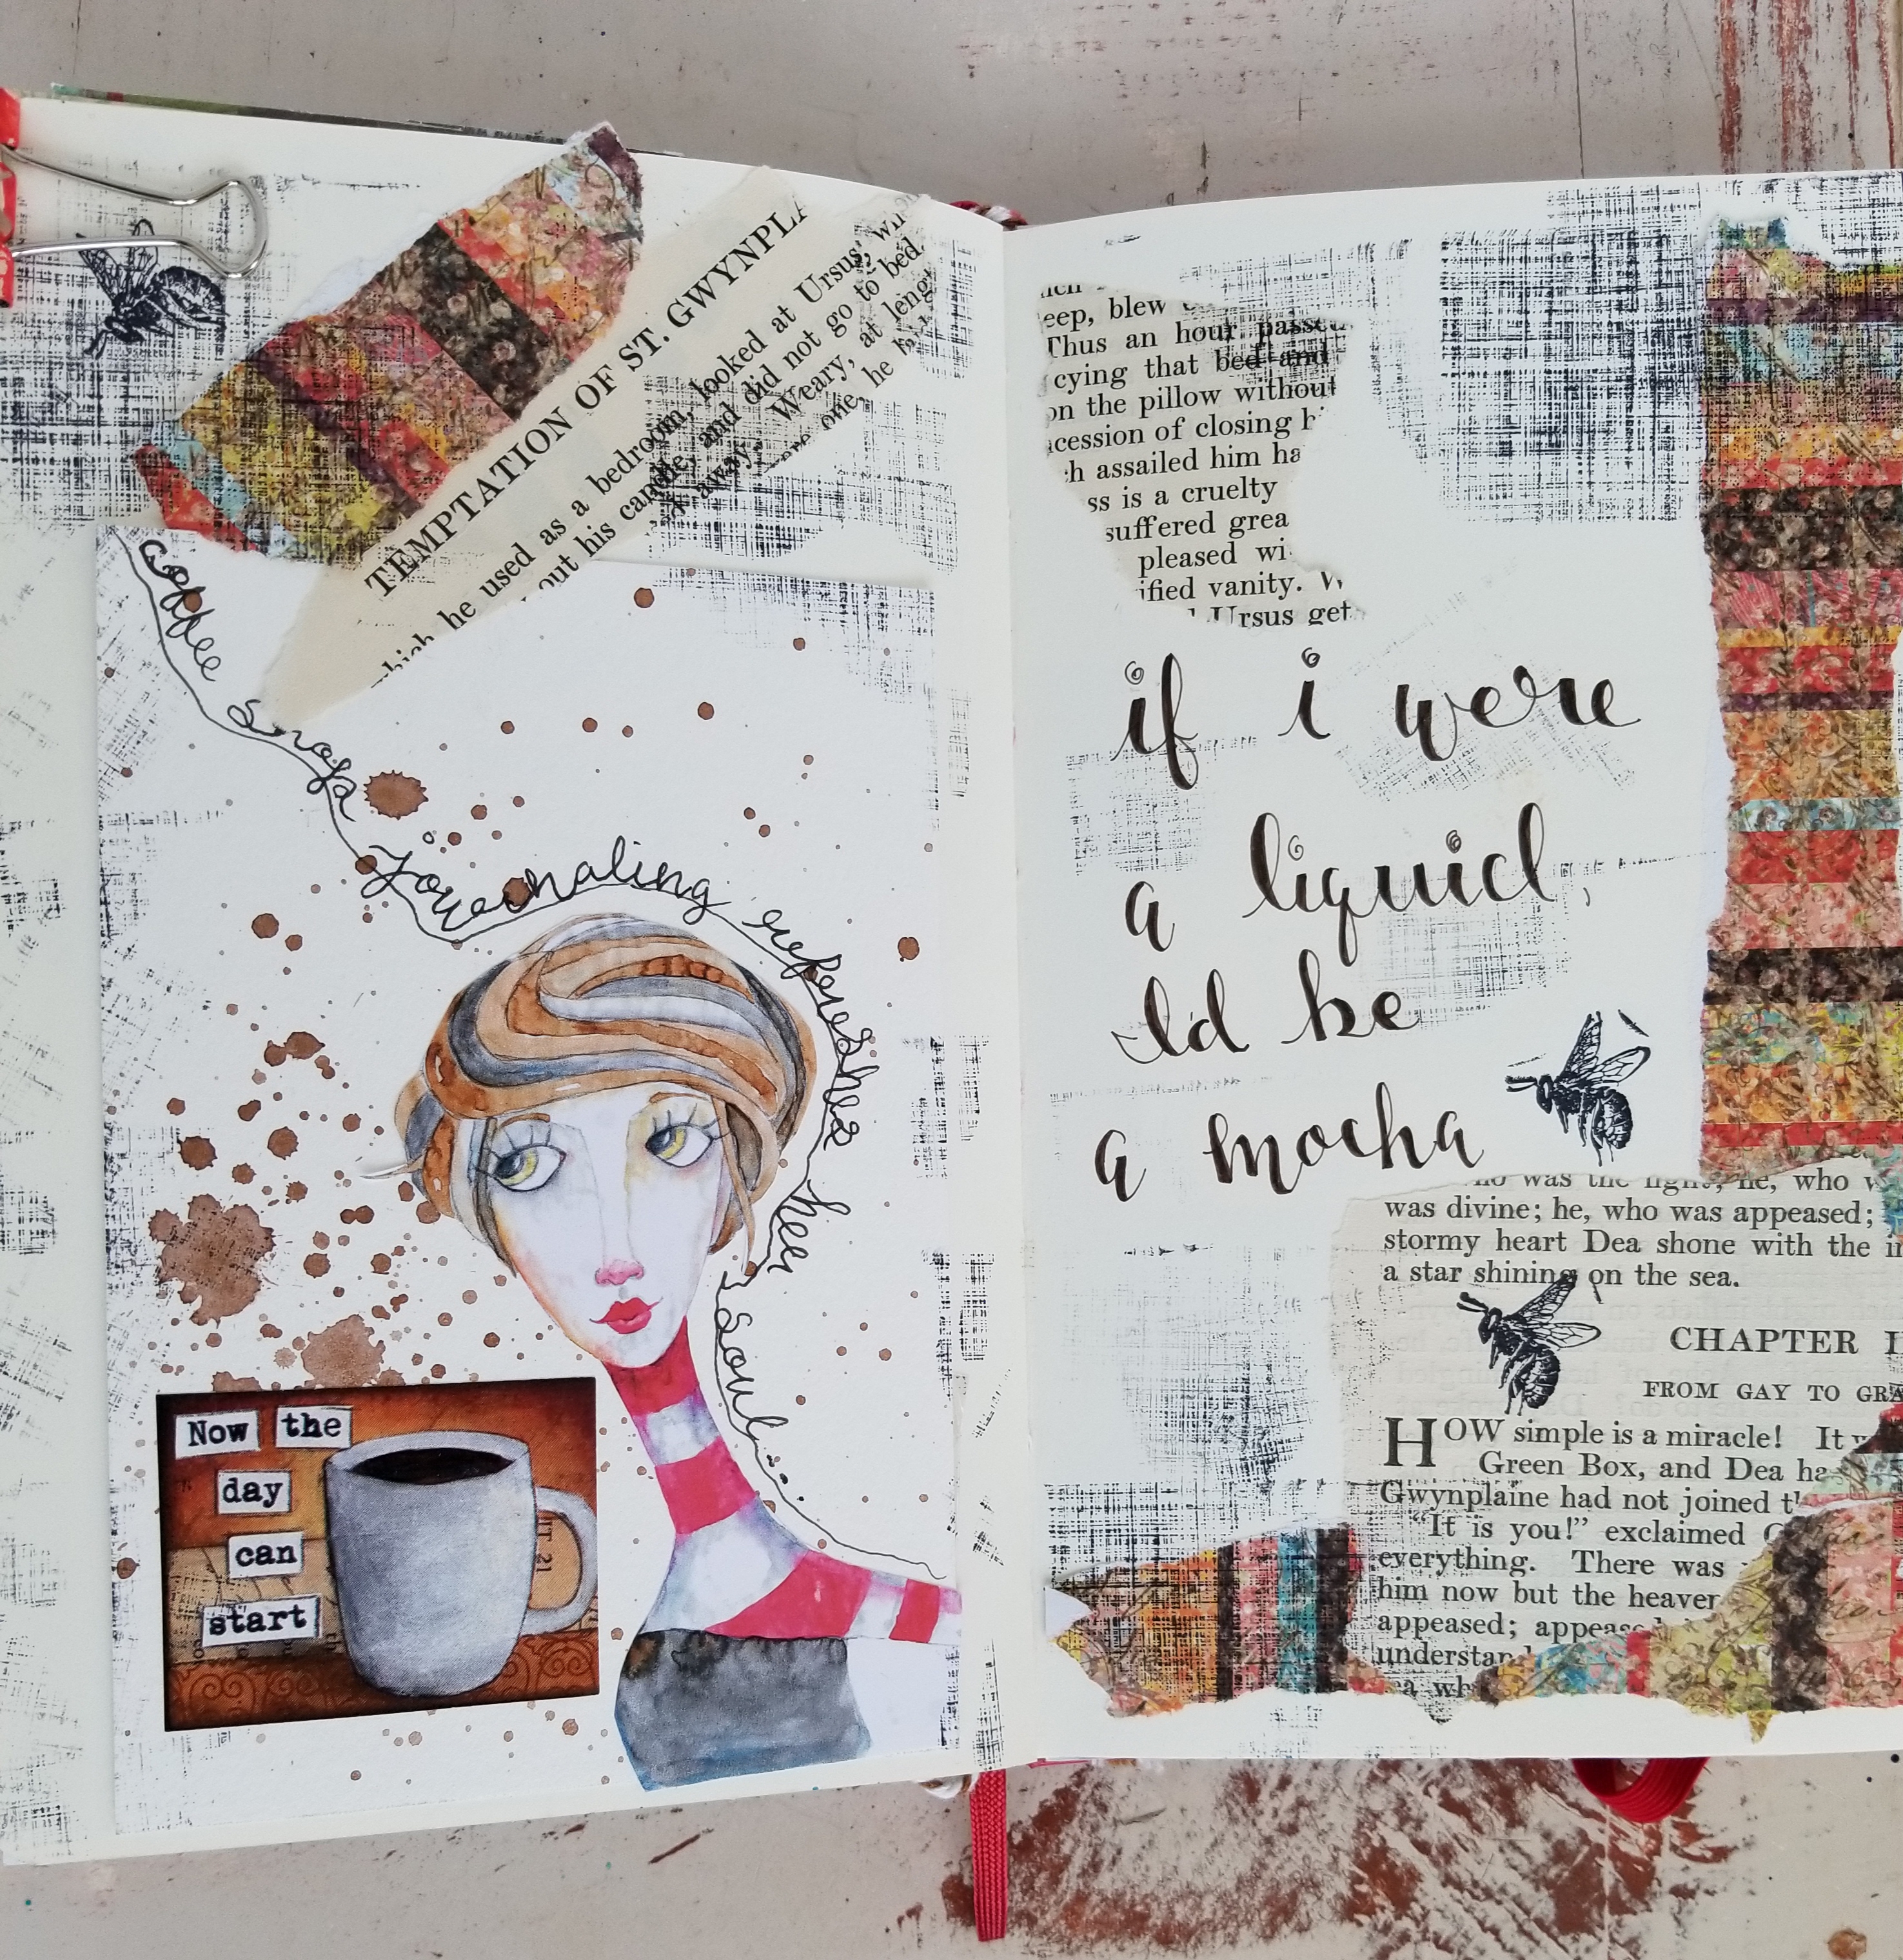 TEMPTATION OF ST. GWYNPLA
which he used as a bedroom, looked at Ursus,
out his candle, and did not go to bed.
away. Weary, at leng
one, he
Coffee & yoga
Journaling refreshes her soul...
Now the
day
can
start
eep, blew
Thus an hour passed
cying that bed and
on the pillow without
cession of closing
ch assailed him ha
ss is a cruelty
suffered grea
pleased wi
ified vanity. W
Ursus get
if i were
a liquid,
I'd be
a mocha
who was the light; he, who w
was divine; he, who was appeased;
stormy heart Dea shone with the
a star shining on the sea.
CHAPTER
FROM GAY TO GRA
HOW simple is a miracle! It
Green Box, and Dea ha
Gwynplaine had not joined
"It is you!" exclaimed G
everything. There was
him now but the heaven
appeased; appeased
understan
ea wh